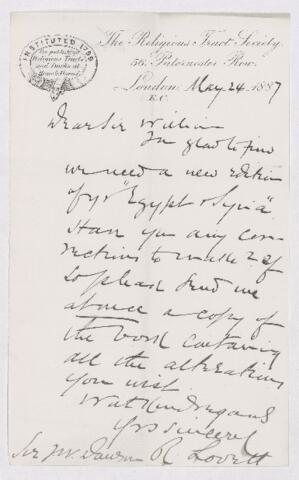 INSTITUTED 1799
For publishing
Religious Tracts
and Books at
Home & Abroad
The Religious Tract Society,
56, Paternoster Row,
London, May 24 1887
E.C.
Dear Sir William
I'm glad to find
we need a new edition
of yr "Egypt & Syria".
Have you any cor-
rections to make? If
so please send me
at once a copy of
the book containing
all the alterations
you wish.
With kind regards
Yrs sincerely
R. Lovett
Sir J W. Dawson